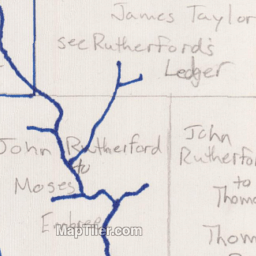 James Taylor
see Rutherford's
Ledger
John Rutherford
to
Moses
John
Rutherfo
to
Thom
Thom
MapTiler.com